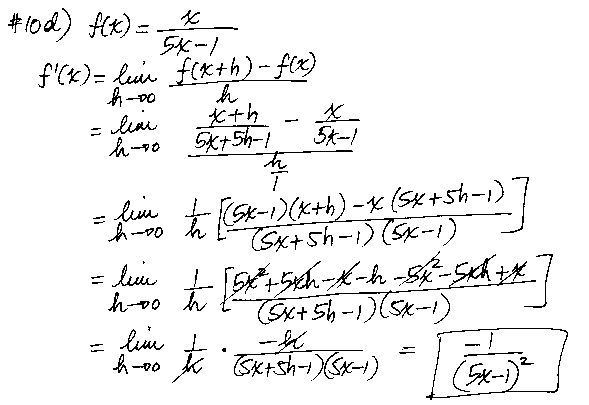 #10d) f(x) = x/(5x-1)
f'(x) = lim h→0 (f(x+h) - f(x))/h
= lim h→0 ((x+h)/(5x+5h-1) - x/(5x-1))/(h/1)
= lim h→0 1/h [((5x-1)(x+h) - x(5x+5h-1))/((5x+5h-1)(5x-1))]
= lim h→0 1/h [(5x²+5xh-x-h-5x²-5xh+x)/((5x+5h-1)(5x-1))]
= lim h→0 1/h · -h/((5x+5h-1)(5x-1)) = -1/(5x-1)²